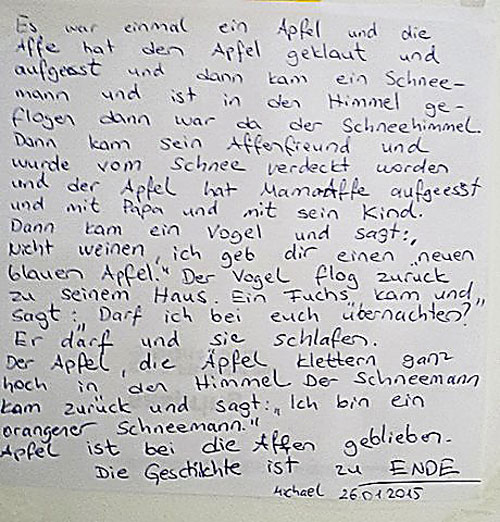 Es war einmal ein Apfel und die
Affe hat den Apfel geklaut und
aufgeesst und dann kam ein Schnee-
mann und ist in den Himmel ge-
flogen dann war da der Schneehimmel.
Dann kam sein Affenfreund und
wurde vom Schnee verdeckt worden
und der Apfel hat MamaAffe aufgeesst
und mit Papa und mit sein Kind.
Dann kam ein Vogel und sagt:„
Nicht weinen, ich geb dir einen neuen
blauen Apfel." Der Vogel flog zurück
zu seinem Haus. Ein Fuchs kam und
sagt: „Darf ich bei euch übernachten?"
Er darf und sie schlafen.
Der Apfel, die Äpfel klettern ganz
hoch in den Himmel Der Schneemann
kam zurück und sagt: „Ich bin ein
orangener Schneemann."
Apfel ist bei die Affen geblieben.
Die Geschichte ist zu ENDE
Michael 26.01.2015